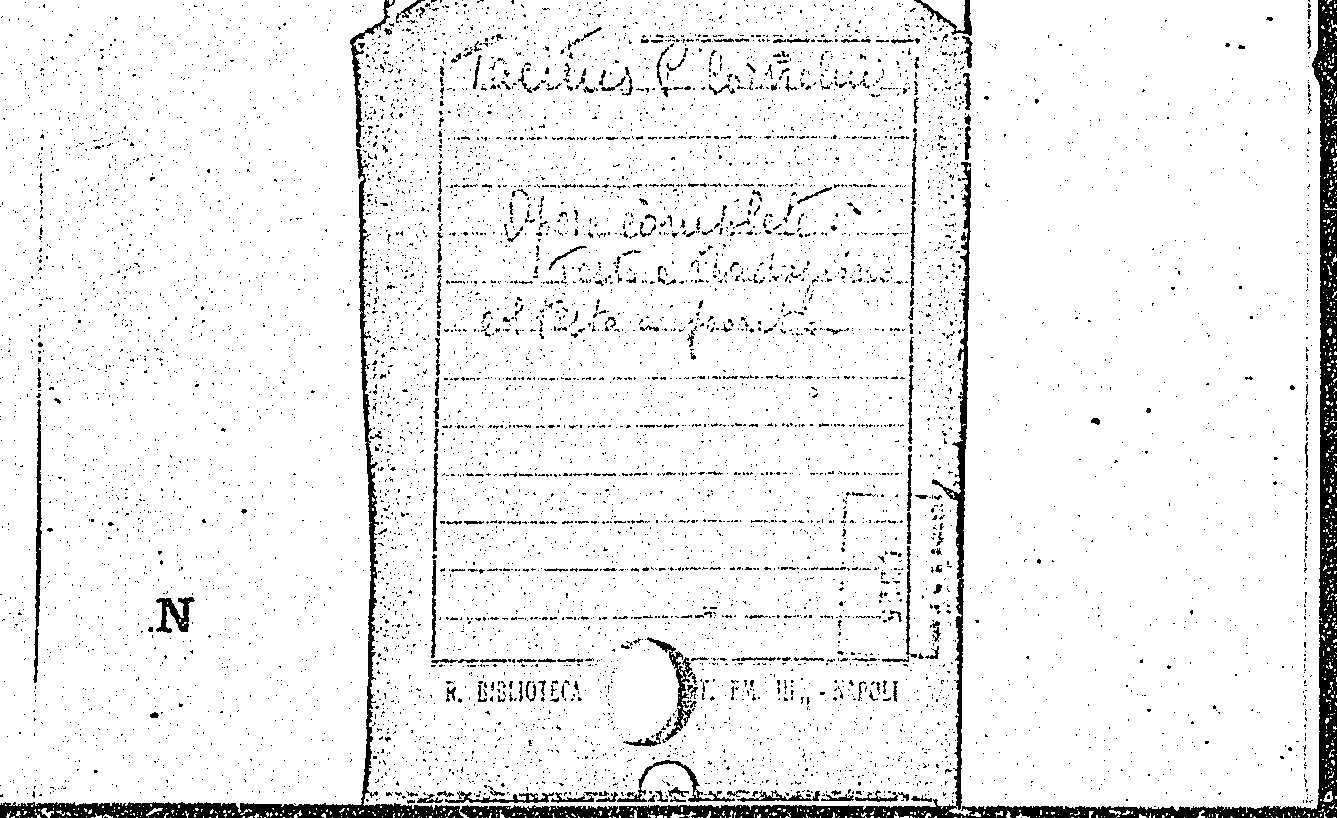 Tacitus P. Cornelius
Opere complete:
Testo e traduzione
N
R. BIBLIOTECA EM. III,, - NAPOLI